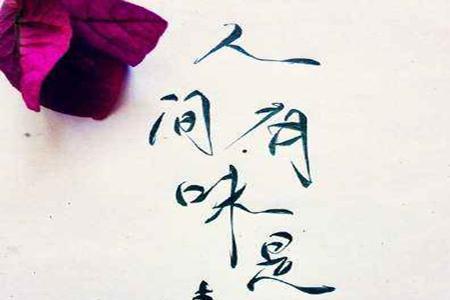 人间有味是